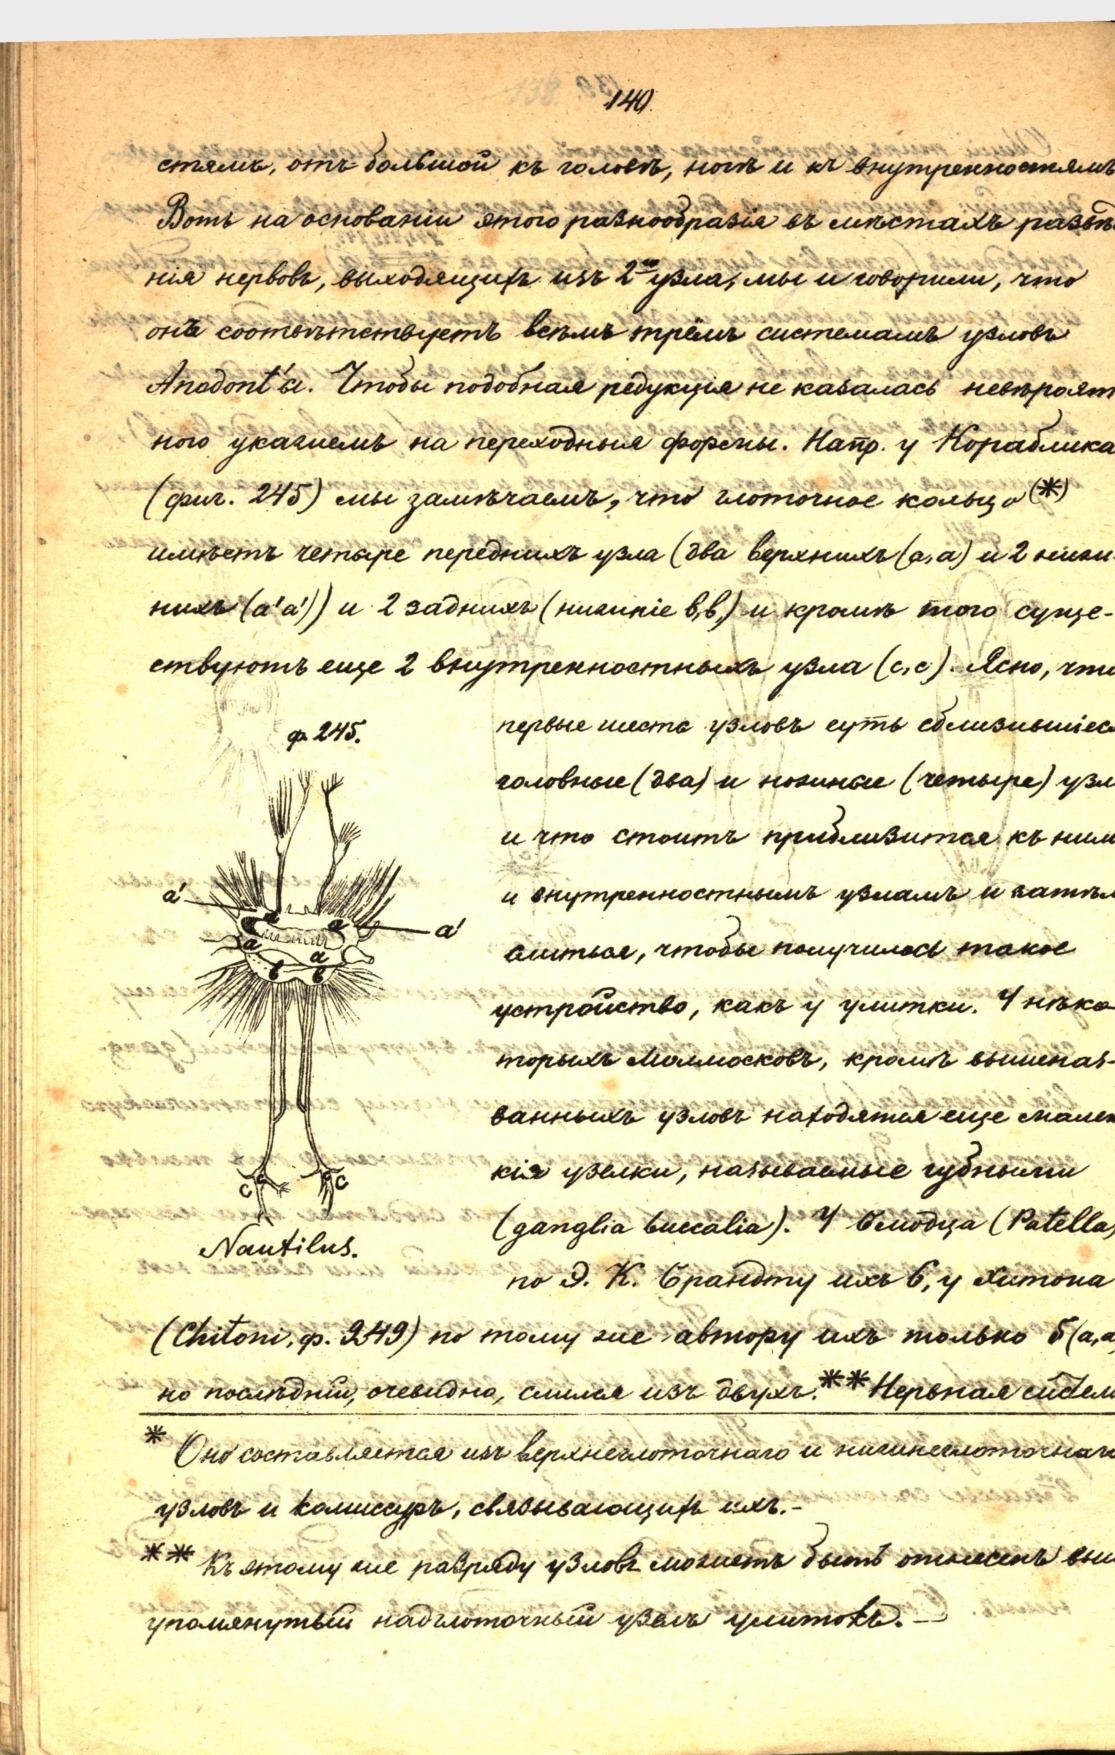 140.
стямъ, отъ большой къ головѣ, ногѣ и къ внутренностямъ
Вотъ на основаніи этого разнообразія въ мѣстахъ развѣтвле
нія нервовъ, выходящихъ изъ 2го узла, мы и говорили, что
онъ соотвѣтствуетъ всѣмъ трёмъ системамъ узловъ
Anodont'ы. Чтобы подобная редукція не казалась невѣроят
ного укажемъ на переходныя формы. Напр. у Кораблика
(фиг. 245) мы замѣчаемъ, что глоточное кольцо (*)
имѣетъ четыре переднихъ узла (два верхнихъ (a, a) и 2 ниж
нихъ (a' a')) и 2 заднихъ (нижніе b, b,) и кромѣ того суще-
ствуютъ еще 2 внутренностныхъ узла (c, c). Ясно, что
первые шесть узловъ суть сблизившіеся
ф. 245.
головные (два) и ножные (четыре) узл
и что стоитъ приблизится къ ним
и внутренностнымъ узламъ и затѣм
слиться, чтобы получилось такое
a' a a a'
a a
b b
устройство, какъ у улитки. У нѣко
торыхъ Моллюсковъ, кромѣ вышеназ-
ванныхъ узловъ находятся еще мален
кія узелки, называемые губными
c c
(ganglia buccalia). У Блюдца (Patella)
Nautilus.
по Э. К. Брандту ихъ 6, у Хитона
(Chiton, ф. 249) по тому же автору ихъ только 5 (a, a
но послѣдній, очевидно, слился изъ двухъ.** Нервная систем
* Оно составляется изъ верхнеглоточнаго и нижнеглоточнаго
узловъ и комиссуръ, связывающихъ ихъ.-
** Къ этому же разряду узловъ можетъ быть отнесенъ выш
упомянутый надглоточный узелъ улитокъ. —